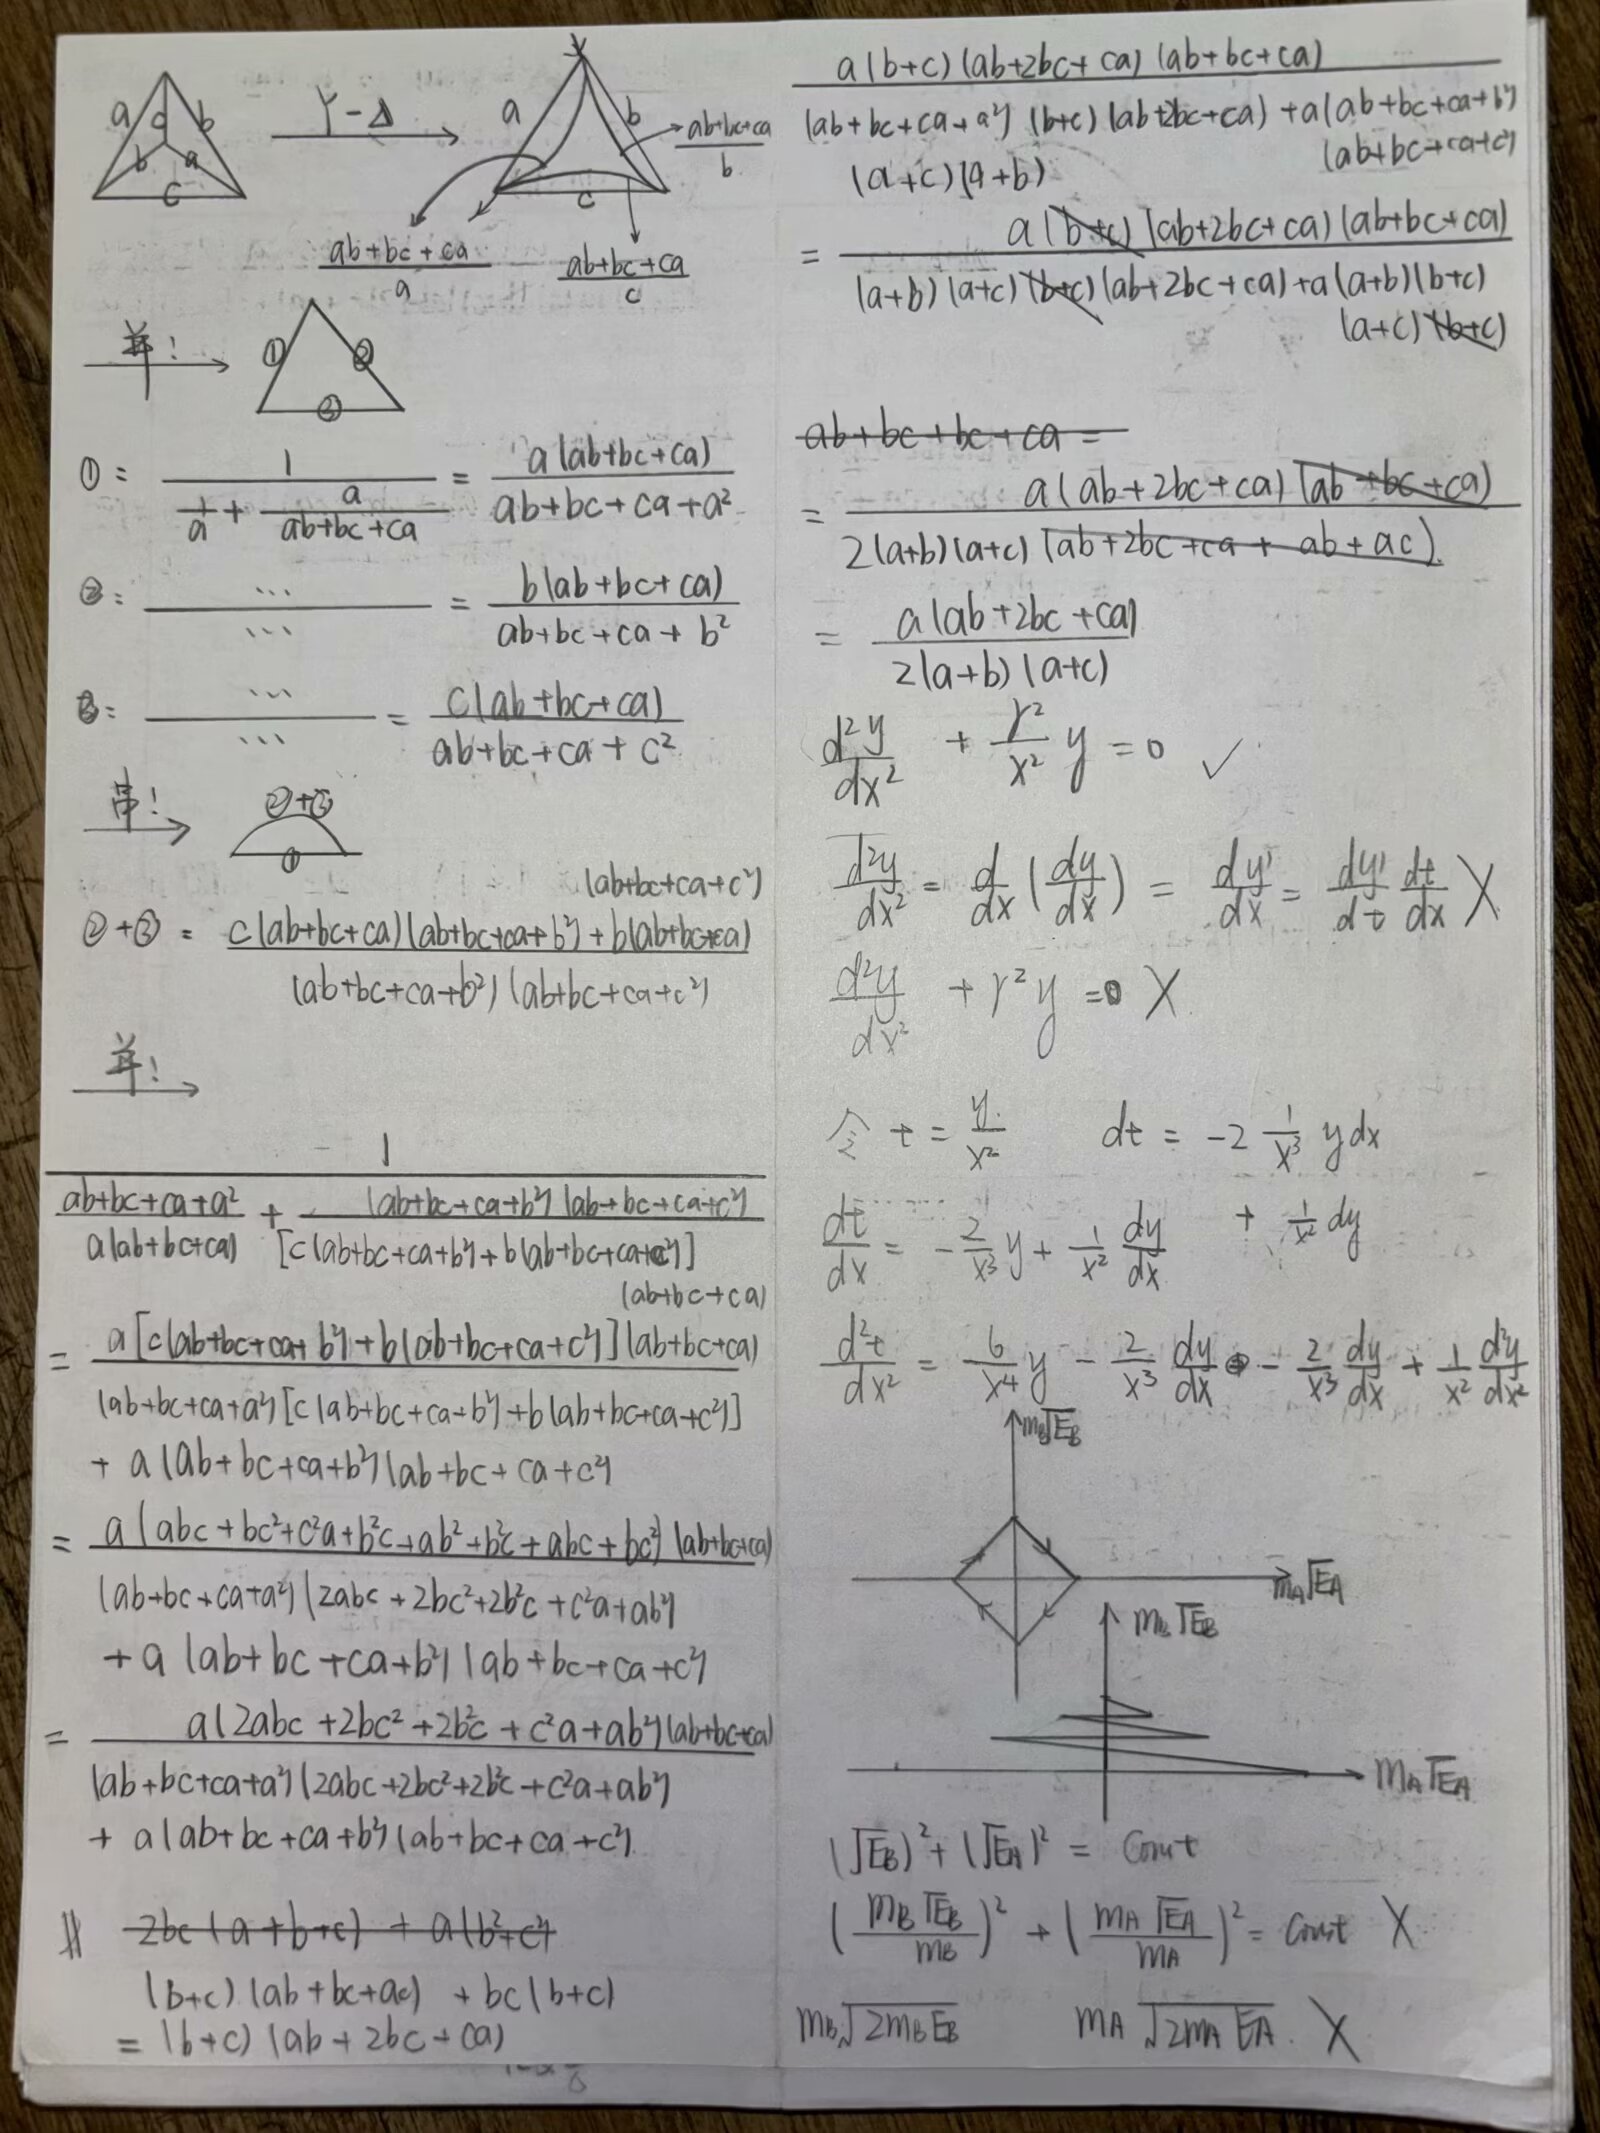 a b
c
b a
c
Y-Δ
a b
c
(ab+bc+ca)/b
(ab+bc+ca)/a (ab+bc+ca)/c
并!
① ②
③
① = 1/(1/a + a/(ab+bc+ca)) = a(ab+bc+ca)/(ab+bc+ca+a²)
②: .../... = b(ab+bc+ca)/(ab+bc+ca+b²)
③= .../... = c(ab+bc+ca)/(ab+bc+ca+c²)
串!
②+③
①
(ab+bc+ca+c²)
②+③ = c(ab+bc+ca)(ab+bc+ca+b²)+b(ab+bc+ca)
(ab+bc+ca+b²)(ab+bc+ca+c²)
并!
1
(ab+bc+ca+a²)/(a(ab+bc+ca)) + (ab+bc+ca+b²)(ab+bc+ca+c²)
[c(ab+bc+ca+b²)+b(ab+bc+ca+c²)]
(ab+bc+ca)
= a[c(ab+bc+ca+b²)+b(ab+bc+ca+c²)](ab+bc+ca)
(ab+bc+ca+a²)[c(ab+bc+ca+b²)+b(ab+bc+ca+c²)]
+ a(ab+bc+ca+b²)(ab+bc+ca+c²)
= a(abc+bc²+c²a+b²c+ab²+b²c+abc+bc²)(ab+bc+ca)
(ab+bc+ca+a²)(2abc+2bc²+2b²c+c²a+ab²)
+ a(ab+bc+ca+b²)(ab+bc+ca+c²)
= a(2abc+2bc²+2b²c+c²a+ab²)(ab+bc+ca)
(ab+bc+ca+a²)(2abc+2bc²+2b²c+c²a+ab²)
+ a(ab+bc+ca+b²)(ab+bc+ca+c²)
2bc(a+b+c) + a(b²+c²)
(b+c)(ab+bc+ac) + bc(b+c)
= (b+c)(ab+2bc+ca)
a(b+c)(ab+2bc+ca)(ab+bc+ca)
(ab+bc+ca+a²)(b+c)(ab+2bc+ca)+a(ab+bc+ca+b²)
(ab+bc+ca+c²)
(a+c)(a+b)
= a(b+c)(ab+2bc+ca)(ab+bc+ca)
(a+b)(a+c)(b+c)(ab+2bc+ca)+a(a+b)(b+c)
(a+c)(b+c)
ab+bc+bc+ca=
= a(ab+2bc+ca)(ab+bc+ca)
2(a+b)(a+c)(ab+2bc+ca+ab+ac)
= a(ab+2bc+ca)/(2(a+b)(a+c))
d²y/dx² + γ²/x² y=0 ✓
d²y/dx² = d/dx (dy/dx) = dy'/dx = dy'/dt dt/dx X
d²y/dx² + γ²y=0 X
令 t=y/x² dt=-2 1/x³ ydx
+ 1/x² dy
dt/dx = -2/x³ y+1/x² dy/dx
d²t/dx² = 6/x⁴ y-2/x³ dy/dx -2/x³ dy/dx+1/x² d²y/dx²
m_B√E_B
m_A√E_A
m_B√E_B
m_A√E_A
(√E_B)²+(√E_A)² = Const
(m_B√E_B/m_B)²+(m_A√E_A/m_A)²=Const X
m_B√2m_BE_B m_A√2m_AE_A. X